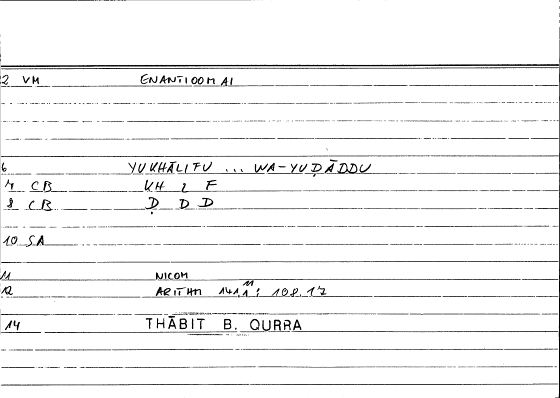 2 VM ENANTIOOMAI
6 YUKHĀLIFU ... WA-YUḌĀDDU
7 CB KH L F
8 CB Ḍ D D
10 SA
11 NICOM
12 ARITHM 141,11; 108,17
14 THĀBIT B. QURRA